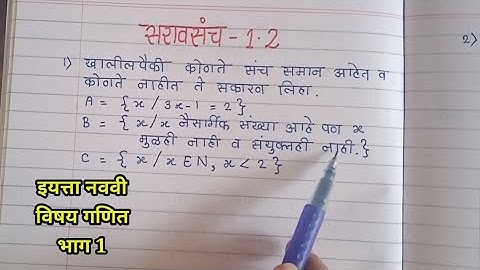 सरावसंच - 1.2
1) खालीलपैकी कोणते संच समान आहेत व
कोणते नाहीत ते सकारण लिहा.
A = { x / 3x-1 = 2 }
B = { x / x नैसर्गिक संख्या आहे पण x
मुळही नाही व संयुक्तही नाही. }
C = { x / x E N, x < 2 }
2)
इयत्ता नववी
विषय गणित
भाग 1